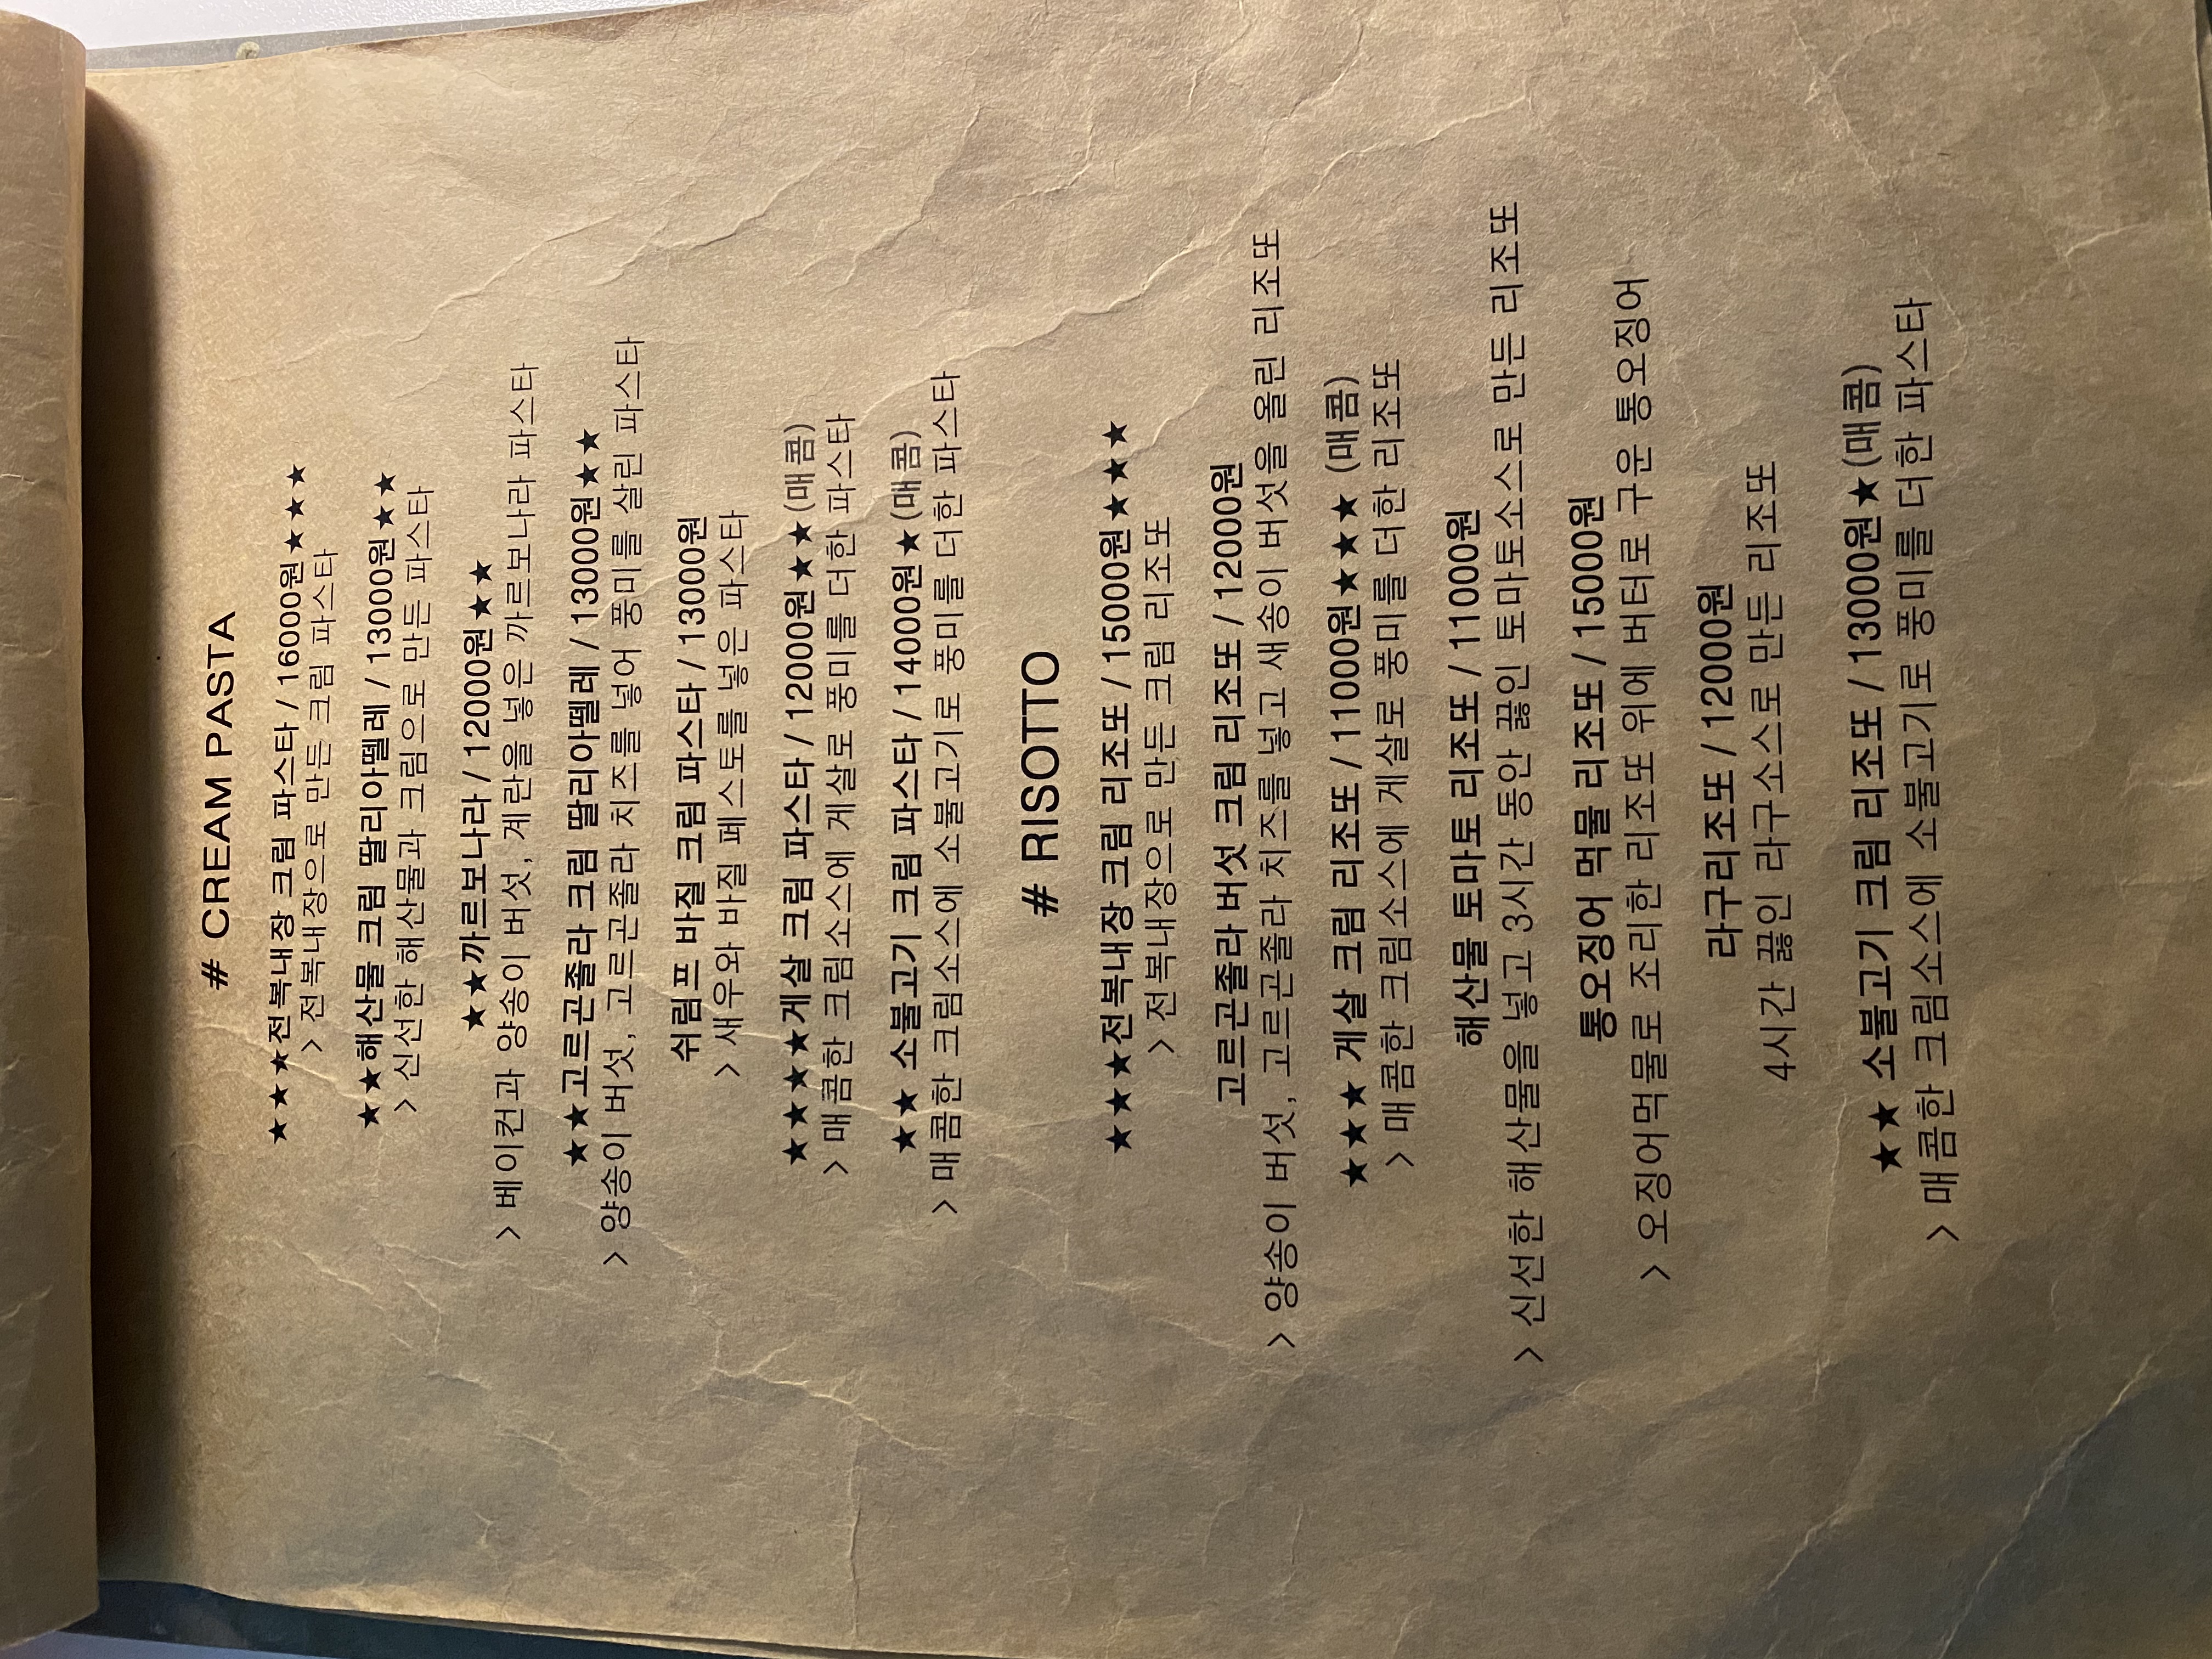 # CREAM PASTA
★★★전복내장 크림 파스타 / 16000원★★★
> 전복내장으로 만든 크림 파스타
★★해산물 크림 딸리아뗄레 / 13000원★★
> 신선한 해산물과 크림으로 만든 파스타
★★까르보나라 / 12000원★★
> 베이컨과 양송이 버섯, 계란을 넣은 까르보나라 파스타
★★고르곤졸라 크림 딸리아뗄레 / 13000원★★
> 양송이 버섯, 고르곤졸라 치즈를 넣어 풍미를 살린 파스타
쉬림프 바질 크림 파스타 / 13000원
> 새우와 바질 페스토를 넣은 파스타
★★★★게살 크림 파스타 / 12000원★★(매콤)
> 매콤한 크림소스에 게살로 풍미를 더한 파스타
★★ 소불고기 크림 파스타 / 14000원★(매콤)
> 매콤한 크림소스에 소불고기로 풍미를 더한 파스타
# RISOTTO
★★★전복내장 크림 리조또 / 15000원★★★
> 전복내장으로 만든 크림 리조또
고르곤졸라 버섯 크림 리조또 / 12000원
> 양송이 버섯, 고르곤졸라 치즈를 넣고 새송이 버섯을 올린 리조또
★★★ 게살 크림 리조또 / 11000원★★★ (매콤)
> 매콤한 크림소스에 게살로 풍미를 더한 리조또
해산물 토마토 리조또 / 11000원
> 신선한 해산물을 넣고 3시간 동안 끓인 토마토소스로 만든 리조또
통오징어 먹물 리조또 / 15000원
> 오징어먹물로 조리한 리조또 위에 버터로 구운 통오징어
라구리조또 / 12000원
4시간 끓인 라구소스로 만든 리조또
★★ 소불고기 크림 리조또 / 13000원★(매콤)
> 매콤한 크림소스에 소불고기로 풍미를 더한 파스타